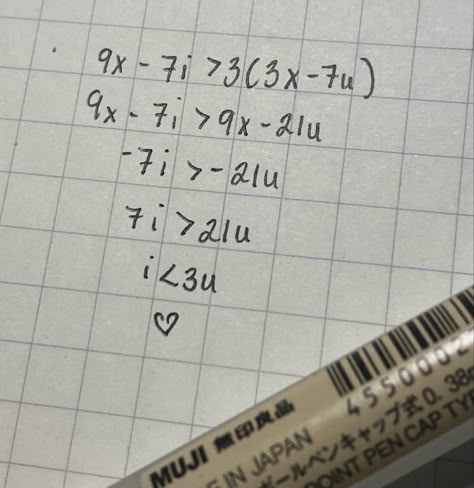 9x - 7i > 3(3x - 7u)
9x - 7i > 9x - 21u
-7i > -21u
7i > 21u
i < 3u
♡
4550002
MUJI 無印良品
IN JAPAN
ボールペンキャップ式 0.38
POINT PEN CAP TYP